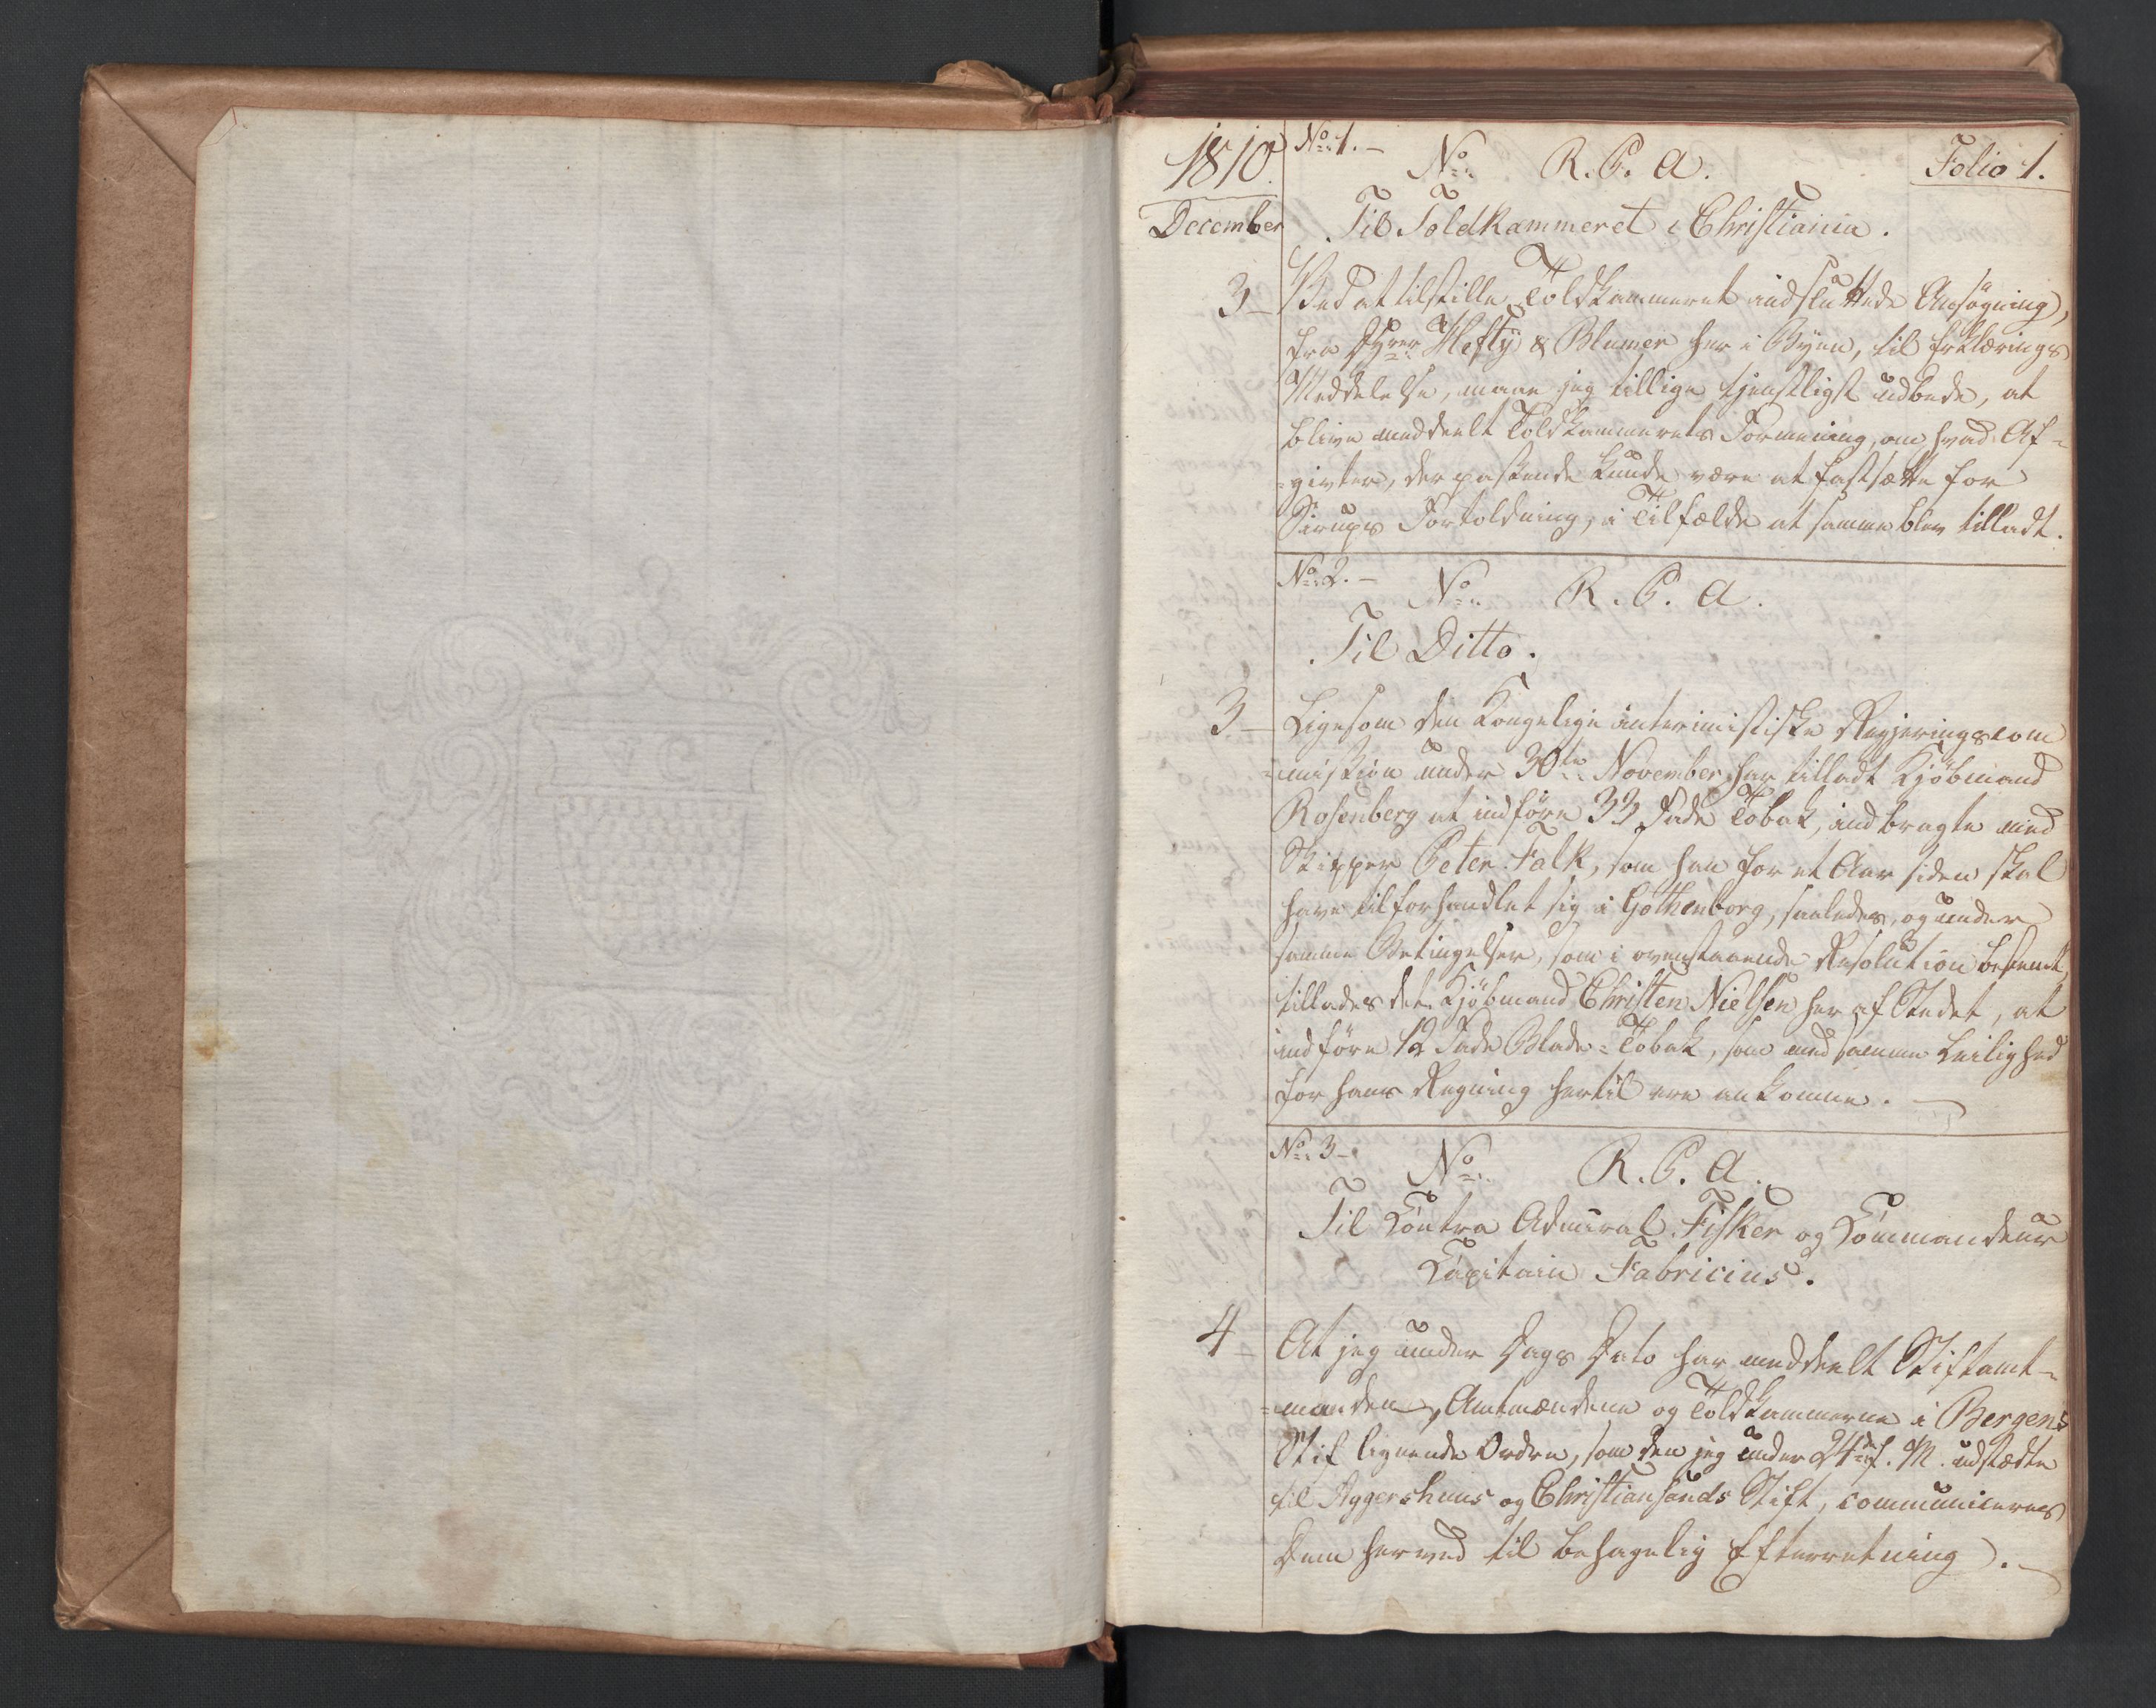 1810
No 1.-
No R. P. A.
Folio 1.
December
Til Toldkammeret i Christiania.
3- Ved at tilstille Toldkammeret indsluttede Ansøgning,
fra Hrer Hefty & Blumer her i Byen, til Erklærings
Meddelelse, maae jeg tillige tjenstligst udbede, at
blive meddeelt Toldkammerets Formening, om hvad Af-
-givter, der passende kunde være at fastsætte for
Sirups Fortoldning, i Tilfælde at samme blev tilladt.
No 2.-
No R. P. A.
Til Ditto.
3- Ligesom den Kongelige interimistiske Regjeringscom
-mission under 30te November har tilladt Kjøbmand
Rosenberg at indføre 33 Fade Tobak, indbragte med
Skipper Peter Falk, som han for et Aar siden skal
have tilforhandlet sig i Gothenborg, saaledes, og under
samme Betingelser, som i ovenstaaende Resolution bestemt,
tillades det Kjøbmand Christen Nielsen her af Stedet, at
indføre 12 Fade Blade-Tobak, som med samme Leilighed
for hans Regning hertil ere ankomne.
No 3-
No R. P. A.
Til Contra Admiral Fisker og Commandeur
Capitain Fabricius.
4- At jeg under Dags Dato har meddeelt Stiftamt-
-manden, Amtmændene og Toldkammerne i Bergens
Stift lignende Ordre, som den jeg under 24de f. M. udstædte
til Aggershuus og Christiansands Stift, communiceres
Dem herved til behagelig Efterretning.